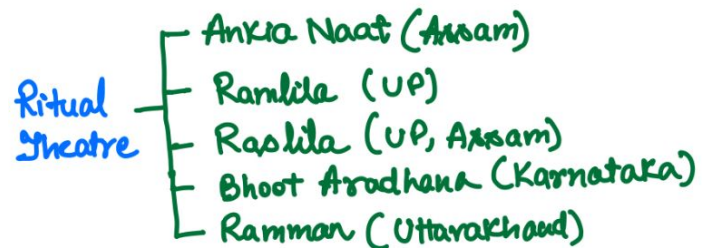 Ritual Theatre
Ankia Naat (Assam)
Ramlila (UP)
Raslila (UP, Assam)
Bhoot Aradhana (Karnataka)
Ramman (Uttarakhand)